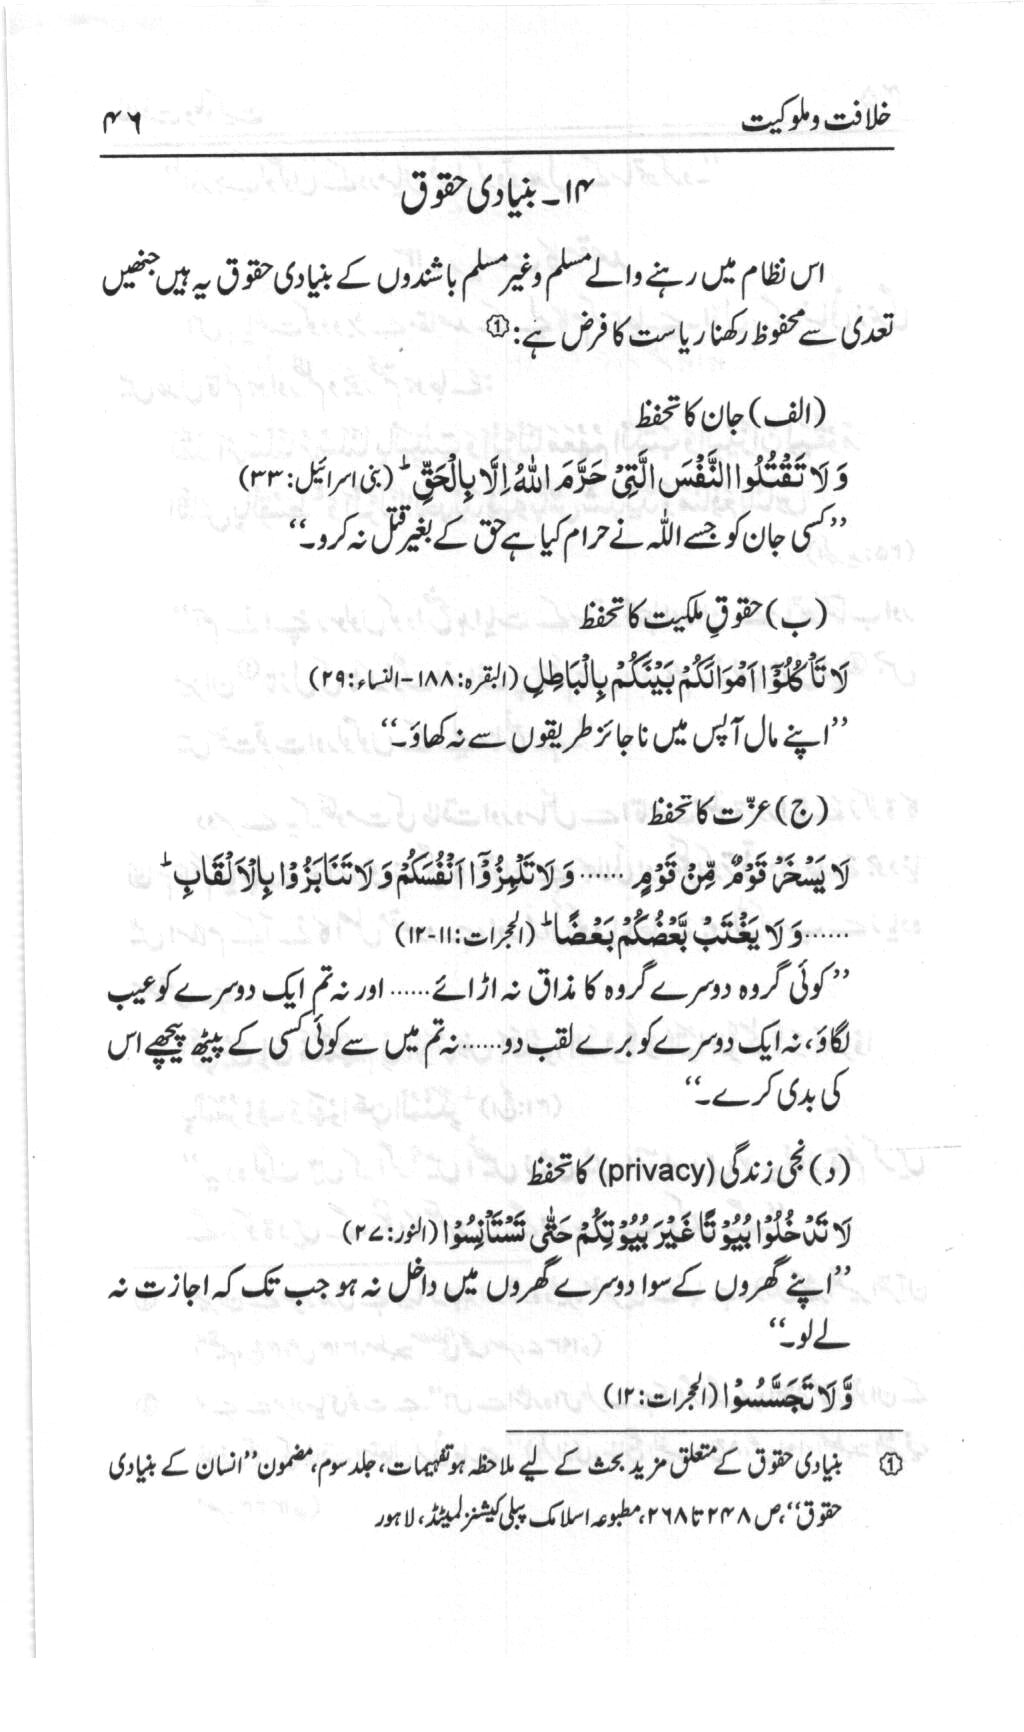 خلافت و ملوکیت
۴۶
۱۴۔ بنیادی حقوق
اس نظام میں رہنے والے مسلم و غیر مسلم باشندوں کے بنیادی حقوق یہ ہیں جنھیں
تعدی سے محفوظ رکھنا ریاست کا فرض ہے:①
(الف) جان کا تحفظ
وَلَا تَقْتُلُوا النَّفْسَ الَّتِيْ حَرَّمَ اللهُ اِلَّا بِالْحَقِّ ؕ (بنی اسرائیل:۳۳)
’’کسی جان کو جسے اللہ نے حرام کیا ہے حق کے بغیر قتل نہ کرو۔‘‘
(ب) حقوقِ ملکیت کا تحفظ
لَا تَاْكُلُوْٓا اَمْوَالَكُمْ بَيْنَكُمْ بِالْبَاطِلِ (البقرہ:۱۸۸-النساء:۲۹)
’’اپنے مال آپس میں ناجائز طریقوں سے نہ کھاؤ۔‘‘
(ج) عزّت کا تحفظ
لَا يَسْخَرْ قَوْمٌ مِّنْ قَوْمٍ ...... وَلَا تَلْمِزُوْٓا اَنْفُسَكُمْ وَلَا تَنَابَزُوْا بِالْاَلْقَابِ ؕ
......وَلَا يَغْتَبْ بَّعْضُكُمْ بَعْضًا ؕ (الحجرات:۱۱-۱۲)
’’کوئی گروہ دوسرے گروہ کا مذاق نہ اڑائے...... اور نہ تم ایک دوسرے کو عیب
لگاؤ، نہ ایک دوسرے کو برے لقب دو......نہ تم میں سے کوئی کسی کے پیٹھ پیچھے اس
کی بدی کرے۔‘‘
(د) نجی زندگی (privacy) کا تحفظ
لَا تَدْخُلُوْا بُيُوْتًا غَيْرَ بُيُوْتِكُمْ حَتّٰى تَسْتَاْنِسُوْا (النور:۲۷)
’’اپنے گھروں کے سوا دوسرے گھروں میں داخل نہ ہو جب تک کہ اجازت نہ
لے لو۔‘‘
وَّلَا تَجَسَّسُوْا (الحجرات:۱۲)
① بنیادی حقوق کے متعلق مزید بحث کے لیے ملاحظہ ہو تفہیمات، جلد سوم، مضمون ’’انسان کے بنیادی
حقوق‘‘، ص ۲۴۸ تا ۲۶۸، مطبوعہ اسلامک پبلی کیشنز لمیٹڈ، لاہور